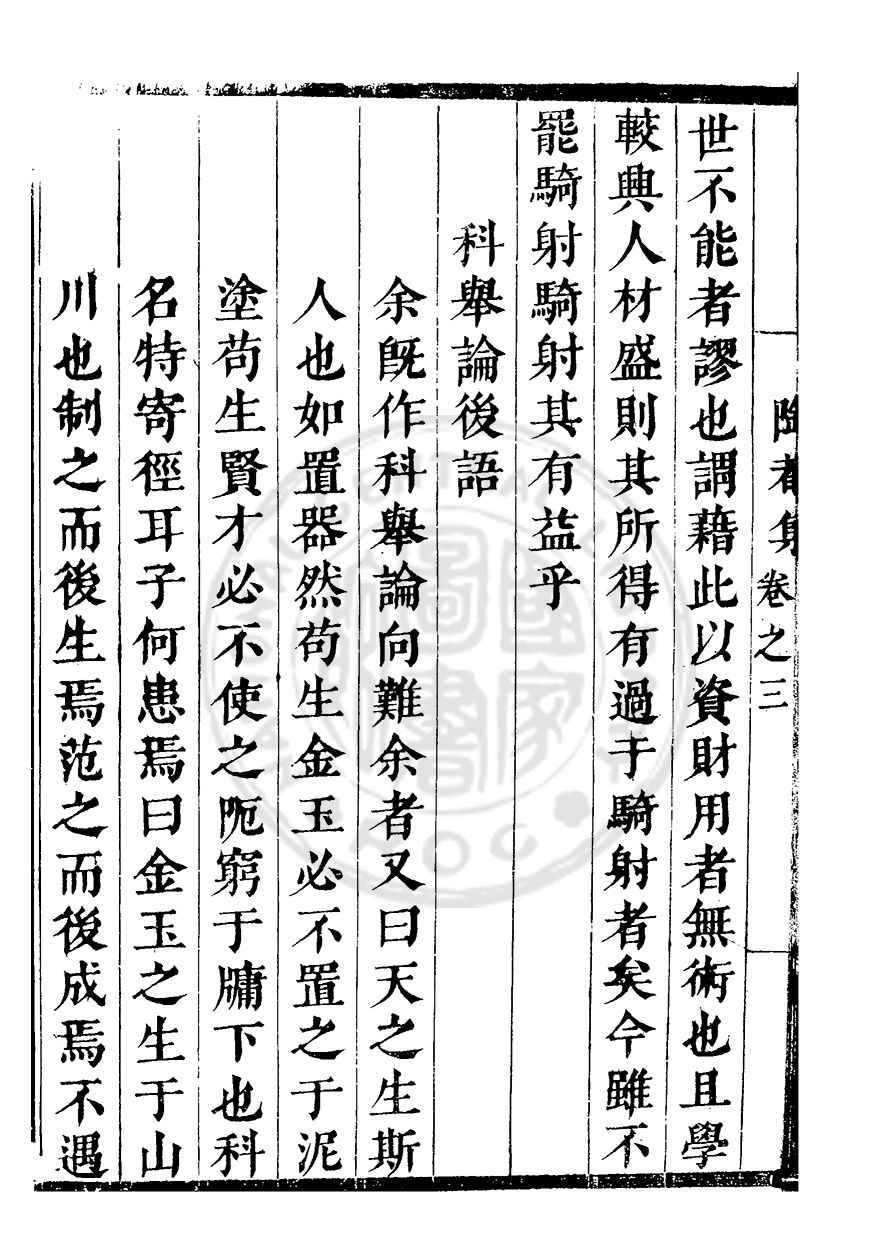 卷之三
世不能者謬也謂藉此以資財用者無術也且學
較興人材盛則其所得有過于騎射者矣今雖不
罷騎射騎射其有益乎
科舉論後語
余旣作科舉論向難余者又曰天之生斯
人也如置器然苟生金玉必不置之于泥
塗苟生賢才必不使之阨窮于牖下也科
名特寄徑耳子何患焉曰金玉之生于山
川也制之而後生焉范之而後成焉不遇